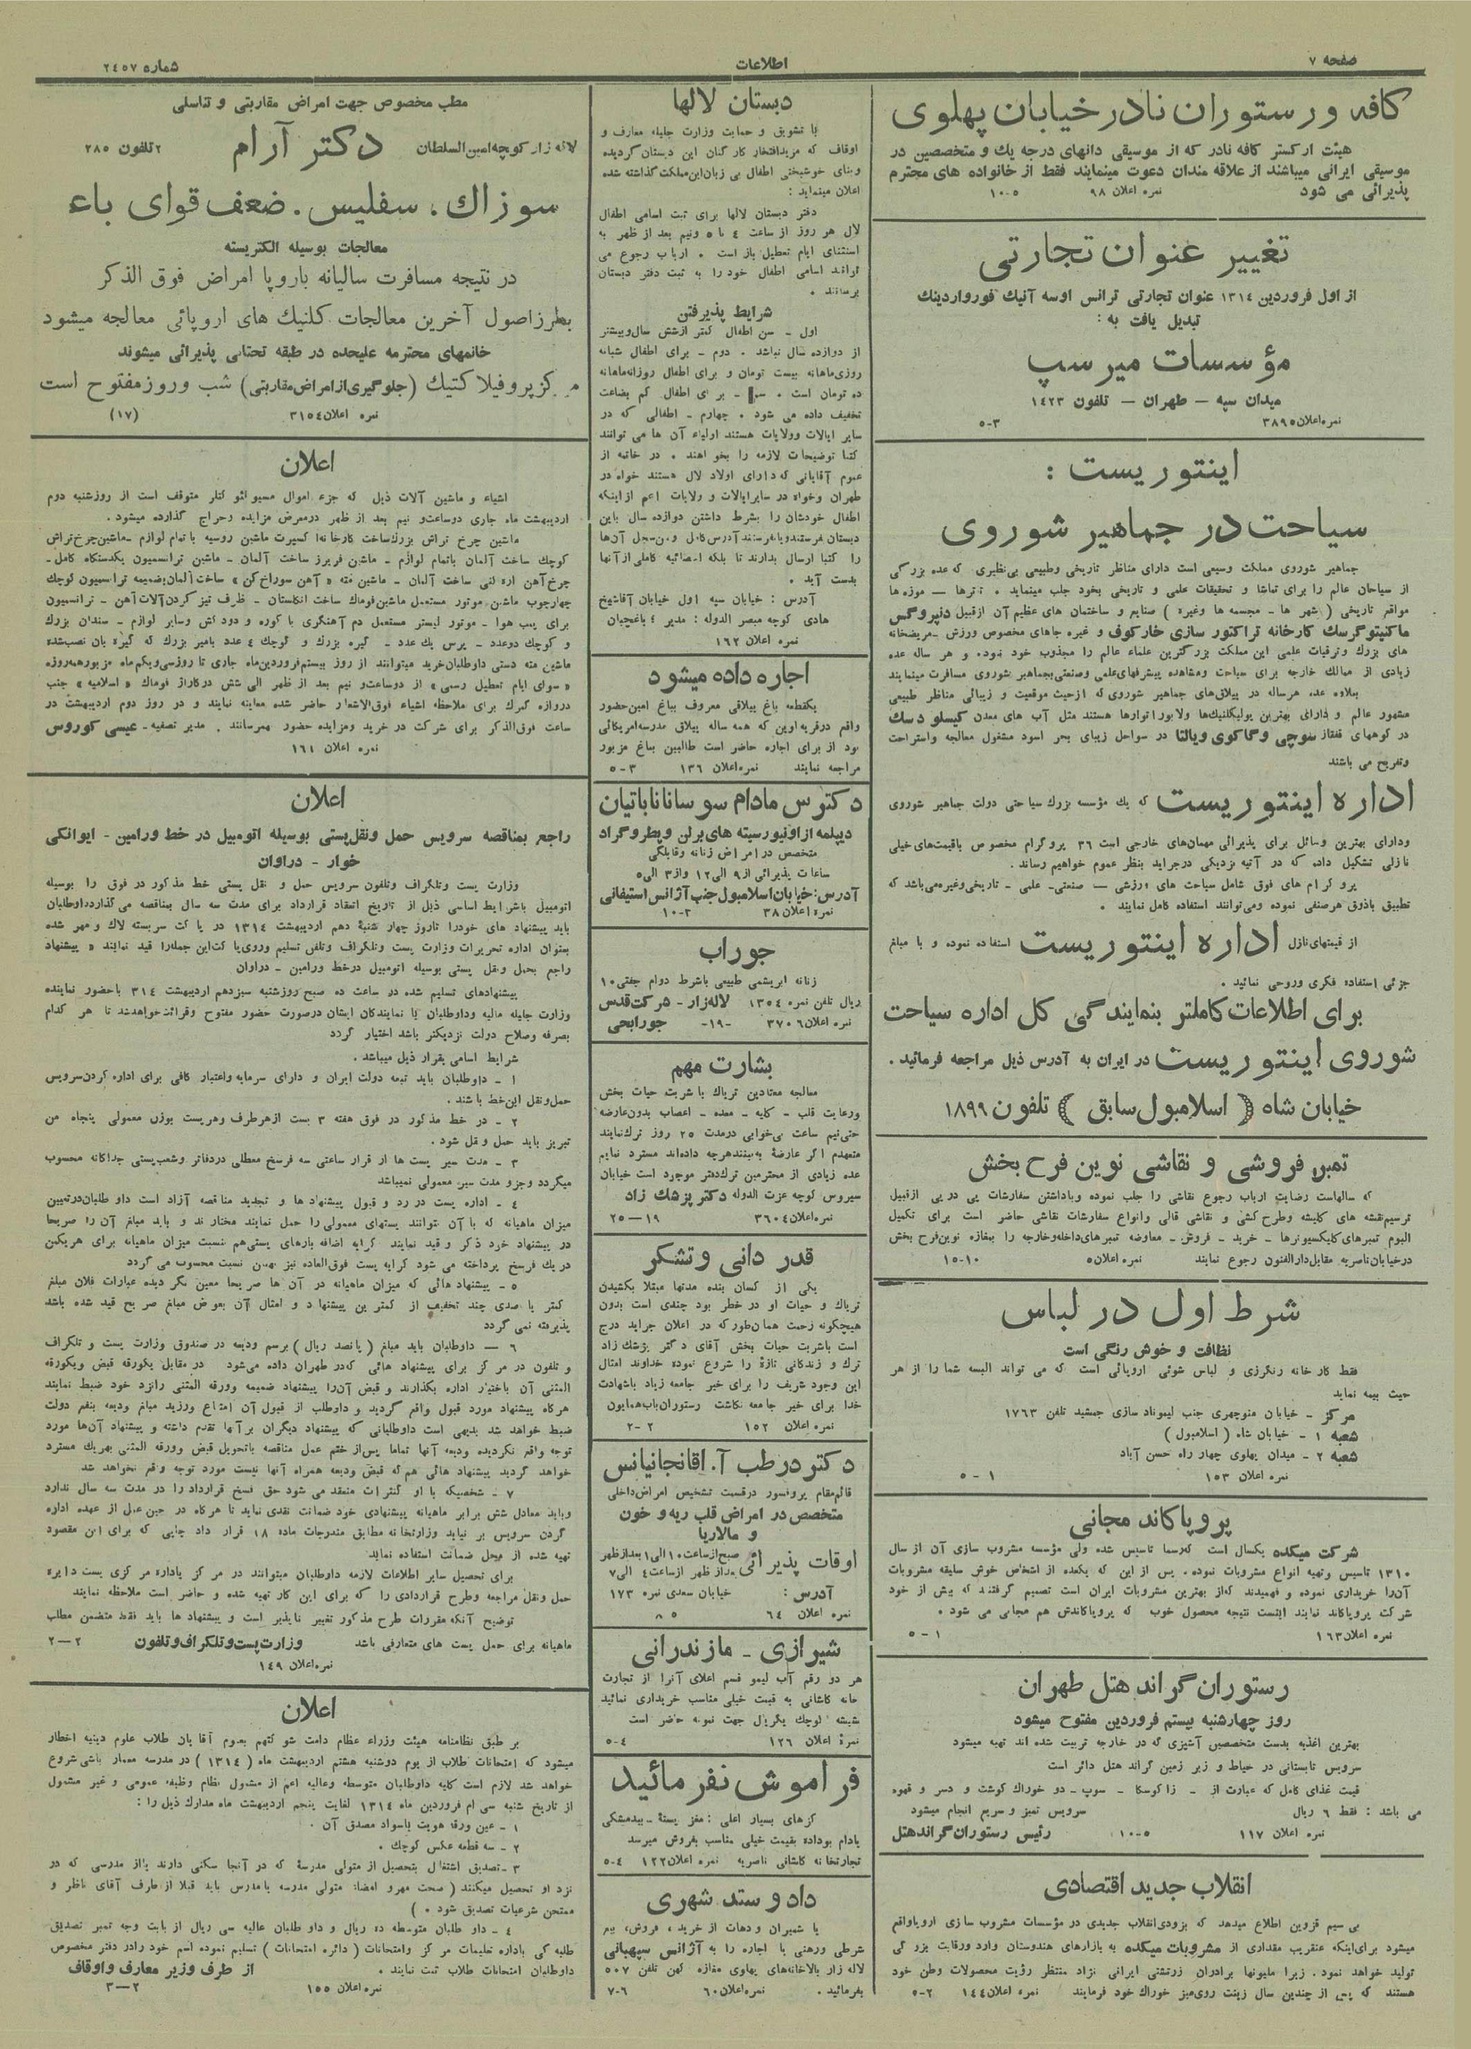 صفحه ۷
اطلاعات
شماره ۲٤٥۷
کافه ورستوران نادر خیابان پهلوی
هیئت ارکستر کافه نادر که از موسیقی دانهای درجه یك و متخصصین در
موسیقی ایرانی میباشند از علاقه مندان دعوت مینمایند فقط از خانواده های محترم
پذیرائی می شود نمره اعلان ۹۸ ۵-۱۰
تغییر عنوان تجارتی
از اول فروردین ۱۳۱٤ عنوان تجارتی ترانس اوسه آنیك فورواردینك
تبدیل یافت به :
مؤسسات میر سپ
میدان سپه – طهران – تلفون ۱٤۲۳
نمره اعلان ۳۸۹٥ ۳-۵
اینتوریست :
سیاحت در جماهیر شوروی
جماهیر شوروی مملکت وسیعی است دارای مناظر تاریخی وطبیعی بی‌نظیری که عده بزرگی
از سیاحان عالم را برای تماشا و تحقیقات علمی و تاریخی بخود جلب مینماید . تاترها – موزه ها
مواقع تاریخی ( شهر ها – مجسمه ها وغیره ) صنایع و ساختمان های عظیم آن ازقبیل دنپروگس
ماکنیتوگرسك کارخانه تراکتور سازی خارکوف و غیره جاهای مخصوص ورزش – مریضخانه
های بزرك وترقیات علمی این مملکت بزرگترین علماء عالم را مجذوب خود نموده و هر ساله عده
زیادی از ممالك خارجه برای سیاحت ومشاهده پیشرفتهای علمی وصنعتی بجماهیر شوروی مسافرت مینمایند
بعلاوه عده هرساله در ییلاق‌های جماهیر شوروی که ازحیث موقعیت و زیبائی مناظر طبیعی
مشهور عالم و دارای بهترین پولیکلنیك‌ها ولابوراتوارها هستند مثل آب های معدن کیسلو دسك
در کوههای قفقاز سوچی وگاکوی ویالتا در سواحل زیبای بحر اسود مشغول معالجه واستراحت
وتفریح می باشند
اداره اینتوریست که یك مؤسسه بزرك سیاحتی دولت جماهیر شوروی
ودارای بهترین وسائل برای پذیرائی مهمان‌های خارجی است ۳٦ پروگرام مخصوص باقیمت‌های خیلی
نازلی تشکیل داده که در آتیه نزدیکی درجراید بنظر عموم خواهیم رساند .
پروگرام های فوق شامل سیاحت های ورزشی – صنعتی – علمی – تاریخی وغیره می‌باشد که
تطبیق باذوق هرصنفی نموده ومی‌توانند استفاده کامل نمایند .
از قیمتهای نازل اداره اینتوریست استفاده نموده و با مبلغ
جزئی استفاده فکری وروحی نمائید .
برای اطلاعات کاملتر بنمایندگی کل اداره سیاحت
شوروی اینتوریست در ایران به آدرس ذیل مراجعه فرمائید .
خیابان شاه ( اسلامبول سابق ) تلفون ۱۸۹۹
تمبر فروشی و نقاشی نوین فرح بخش
که سالهاست رضایت ارباب رجوع نقاشی را جلب نموده وباداشتن سفارشات پی درپی ازقبیل
ترسیم نقشه های کلیشه وطرح کشی و نقاشی قالی وانواع سفارشات نقاشی حاضر است برای تکمیل
البوم تمبرهای کلکسیونرها – خرید – فروش – معاوضه تمبرهای داخله وخارجه را بمغازه نوین فرح بخش
درخیابان ناصریه مقابل دارالفنون رجوع نمایند نمره اعلان ٥ ۱۰-۱٥
شرط اول در لباس
نظافت و خوش رنگی است
فقط کارخانه رنگرزی و لباس شوئی اروپائی است که می تواند البسه شما را از هر
حیث بیمه نماید
مرکز – خیابان منوچهری جنب لیموناد سازی جمشید تلفن ۱۷٦۳
شعبه ۱ – خیابان شاه ( اسلامبول )
شعبه ۲ – میدان پهلوی چهار راه حسن آباد
نمره اعلان ۱٥۳ ۱-٥
پروپاکاند مجانی
شرکت میکده یکسال است که رسما تاسیس شده ولی مؤسسه مشروب سازی آن از سال
۱۳۱۰ تاسیس وتهیه انواع مشروبات نموده . پس از این که یکعده از اشخاص خوش سلیقه مشروبات
آن‌را خریداری نموده و فهمیدند که از بهترین مشروبات ایران است تصمیم گرفتند که بیش از خود
شرکت پروپاکاند نمایند اینست نتیجه محصول خوب که پروپاکاندش هم مجانی می شود .
نمره اعلان ۱٦۳ ۱-٥
رستوران گراند هتل طهران
روز چهارشنبه بیستم فروردین مفتوح میشود
بهترین اغذیه بدست متخصصین آشپزی که در خارجه تربیت شده اند تهیه میشود
سرویس تابستانی در حیاط و زیر زمین گراند هتل دائر است
قیمت غذای کامل که عبارت از – زاکوسکا – سوپ – دو خوراك گوشت و دسر و قهوه
می باشد : فقط ٦ ریال سرویس تمیز و سریع انجام میشود
نمره اعلان ۱۱۷ ٥-۱۰ رئیس رستوران گراند هتل
انقلاب جدید اقتصادی
بی سیم قزوین اطلاع میدهد که بزودی انقلاب جدیدی در مؤسسات مشروب سازی اروپا واقع
میشود برای اینکه عنقریب مقداری از مشروبات میکده به بازارهای هندوستان وارد ورقابت بزرگی
تولید خواهد نمود . زیرا ملیونها برادران زرتشتی ایرانی نژاد منتظر رؤیت محصولات وطن خود
هستند که پس از چندین سال زینت روی میز خوراك خود فرمایند نمره اعلان ۱٤٤ ۲-٥
دبستان لالها
با تشویق و حمایت وزارت جلیله معارف و
اوقاف که مزید افتخار کارکنان این دبستان گردیده
وبنای خوشبختی اطفال بی زبان این مملکت گذاشته شده
اعلان مینماید :
دفتر دبستان لالها برای ثبت اسامی اطفال
لال هر روز از ساعت ٤ تا ٥ ونیم بعد از ظهر به
استثنای ایام تعطیل باز است . ارباب رجوع می
توانند اسامی اطفال خود را به ثبت دفتر دبستان
برسانند .
شرایط پذیرفتن
اول – سن اطفال کمتر ازشش سال وبیشتر
از دوازده سال نباشد . دوم – برای اطفال شبانه
روزی ماهانه بیست تومان و برای اطفال روزانه ماهانه
ده تومان است . سوم – برای اطفال کم بضاعت
تخفیف داده می شود . چهارم – اطفالی که در
سایر ایالات وولایات هستند اولیاء آن ها می توانند
کتبا توضیحات لازمه را بخواهند . در خاتمه از
عموم آقایانی که دارای اولاد لال هستند خواه در
طهران وخواه در سایر ایالات و ولایات اعم از اینکه
اطفال خودشان را بشرط داشتن دوازده سال باین
دبستان بفرستند یا نفرستند آدرس کامل و سن سجل آن‌ها
را کتبا ارسال بدارند تا بلکه احصائیه کاملی از آنها
بدست آید .
آدرس : خیابان سپه اول خیابان آقاشیخ
هادی کوچه مبصر الدوله : مدیر ٤ باغچبان
نمره اعلان ۱٦۲
اجاره داده میشود
یکقطعه باغ ییلاقی معروف بباغ امین حضور
واقع در قریه اوین که همه ساله ییلاق مدرسه امریکائی
بود از برای اجاره حاضر است طالبین بباغ مزبور
مراجعه نمایند نمره اعلان ۱۳٦ ۳-٥
دکترس مادام سوسانا ناباتیان
دیپلمه از اونیورسیته های برلن و پطروگراد
متخصص در امراض زنانه وقابلگی
ساعات پذیرائی از ۹ الی ۱۲ و از ۳ الی ٥
آدرس: خیابان اسلامبول جنب آژانس استیفانی
نمره اعلان ۳۸ ۲-۱۰
جوراب
زنانه ابریشمی طبیعی باشرط دوام جفتی ۱۰
ریال تلفن نمره ۱۳٥٤ لاله‌زار – شرکت قدس
نمره اعلان ۳۷۰٦ -۱۹- جورابچی
بشارت مهم
معالجه معتادین تریاك با شربت حیات بخش
ورعایت قلب – کلیه – معده – اعصاب بدون عارضه
حتی نیم ساعت بی‌خوابی درمدت ۲٥ روز ترك نمایند
متعهدم اگر عارضهٔ به‌بینند هرچه داده‌اند مسترد نمایم
عده زیادی از محترمین ترك دفتر موجود است خیابان
سیروس کوچه عزت الدوله دکتر پزشك زاد
نمره اعلان ۳٦۰٤ ۱۹—۲٥
قدر دانی وتشکر
یکی از کسان بنده مدتها مبتلا بکشیدن
تریاك و حیات او در خطر بود چندی است بدون
هیچگونه زحمت همان‌طور که در اعلان جراید درج
است باشربت حیات بخش آقای دکتر پزشك زاد
ترك و زندگانی تازهٔ را شروع نموده خداوند امثال
این وجود شریف را برای خیر جامعه زیاد باشهادت
خدا برای خیر جامعه نگاشت رستوران باب‌همایون
نمره اعلان ۱٥۲ ۲-۲
دکتر در طب آ. آقانجانیانس
قائم‌مقام پروفسور در قسمت تشخیص امراض داخلی
متخصص در امراض قلب ریه و خون
و مالاریا
اوقات پذیرائی صبح از ساعت ۱۰ الی ۱ بعد از ظهر
بعد از ظهر از ساعت ٤ الی ۷
آدرس : خیابان سعدی نمره ۱۷۳
نمره اعلان ٦٤ ٥ ۸
شیرازی – مازندرانی
هر دو رقم آب لیمو قسم اعلای آنرا از تجارت
خانه کاشانی به قیمت خیلی مناسب خریداری نمائید
شیشه کوچك یکریال جهت نمونه حاضر است
نمرهٔ اعلان ۱۲٦ ٤-٥
فراموش نفرمائید
گزهای بسیار اعلی : مغز پسته – بیدمشکی
بادام بوداده بقیمت خیلی مناسب بفروش میرسد
تجارتخانه کاشانی ناصریه نمره اعلان ۱۲۲ ٤-٥
داد و ستد شهری
یا شمیران و دهات از خرید ، فروش، بیع
شرطی ورهنی یا اجاره را به آژانس سپهبانی
لاله زار بالاخانه‌های پهلوی مغازه کهن تلفن ٥۰۷
بفرمائید . نمره اعلان ٦۰ ٦-۷
مطب مخصوص جهت امراض مقاربتی و تناسلی
لاله زار کوچه امین السلطان دکتر آرام تلفون ۲۸٥
سوزاك ، سفلیس . ضعف قوای باء
معالجات بوسیله الکتریسته
در نتیجه مسافرت سالیانه باروپا امراض فوق الذکر
بطرز اصول آخرین معالجات کلنیك های اروپائی معالجه میشود
خانمهای محترمه علیحده در طبقه تحتانی پذیرائی میشوند
مرکز پروفیلاکتیك ( جلوگیری از امراض مقاربتی ) شب و روز مفتوح است
نمره اعلان ۳۱٥٤ (۱۷)
اعلان
اشیاء و ماشین آلات ذیل که جزء اموال مسیو اتو کنار متوقف است از روز شنبه دوم
اردیبهشت ماه جاری دوساعت و نیم بعد از ظهر درمعرض مزایده وحراج گذارده میشود .
ماشین چرخ تراش بزرك ساخت کارخانه‌ا کسپرت ماشین روسیه باتمام لوازم – ماشین چرخ تراش
کوچك ساخت آلمان باتمام لوازم – ماشین فریزر ساخت آلمان – ماشین ترانسمیون یکدستگاه کامل –
چرخ آهن اره لنی ساخت آلمان – ماشین مته « آهن سوراخ کن » ساخت آلمان بضمیمه ترانسمیون کوچك
چهارچوب ماشین موتور مستعمل ماشین فوماك ساخت انگلستان – ظرف تیز کردن آلات آهن – ترانسمیون
برای پمپ هوا – موتور لیستر مستعمل دم آهنگری با کوره و دودکش وسایر لوازم – سندان بزرك
و کوچك دوعدد – پرس یك عدد – گیره بزرك و کوچك ٤ عدد بامیز بزرك که گیره بان نصب شده
ماشین مته دستی داوطلبان خرید میتوانند از روز بیستم فروردین ماه جاری تا روز سی‌ویکم ماه مزبور همه‌روزه
« سوای ایام تعطیل رسمی » از دوساعت و نیم بعد از ظهر الی شش درکاراژ فوماك « اسلامیه » جنب
دروازه گمرك برای ملاحظه اشیاء فوق‌الاشعار حاضر شده معاینه نمایند و در روز دوم اردیبهشت در
ساعت فوق‌الذکر برای شرکت در خرید ومزایده حضور بهم‌رسانند . مدیر تصفیه – عیسی کوروس
نمره اعلان ۱٦۱
اعلان
راجع بمناقصه سرویس حمل ونقل پستی بوسیله اتومبیل در خط ورامین – ایوانکی
خوار – دراوان
وزارت پست وتلگراف وتلفون سرویس حمل و نقل پستی خط مذکور در فوق را بوسیله
اتومبیل باشرایط اساسی ذیل از تاریخ انعقاد قرارداد برای مدت سه سال بمناقصه می‌گذارد داوطلبان
باید پیشنهاد های خود را تا روز چهار شنبه دهم اردیبهشت ۱۳۱٤ در پاکت سربسته لاك و مهر شده
بعنوان اداره تحریرات وزارت پست وتلگراف وتلفن تسلیم وروی پاکت این جمله را قید نمایند « پیشنهاد
راجع بحمل ونقل پستی بوسیله اتومبیل درخط ورامین – دراوان
پیشنهادهای تسلیم شده در ساعت ده صبح روز شنبه سیزدهم اردیبهشت ۳۱٤ باحضور نماینده
وزارت جلیله مالیه وداوطلبان یا نمایندگان ایشان درصورت حضور مفتوح وقرائت خواهد شد تا هر کدام
بصرفه وصلاح دولت نزدیکتر باشد اختیار گردد
شرایط اساسی بقرار ذیل میباشد .
۱ – داوطلبان باید تبعه دولت ایران و دارای سرمایه واعتبار کافی برای اداره کردن سرویس
حمل ونقل این خط باشند .
۲ – در خط مذکور در فوق هفته ۳ پست ازهرطرف وهر پست بوزن معمولی پنجاه من
تبریز باید حمل و نقل شود .
۳ – مدت سیر پست ها از قرار ساعتی سه فرسخ معطلی در دفاتر وشعب پستی جداگانه محسوب
میگردد و جزو مدت سیر معمولی نمیباشد
٤ – اداره پست در رد و قبول پیشنهاد ها و تجدید مناقصه آزاد است داوطلبان درتعیین
میزان ماهیانه که با آن بتوانند پستهای معمولی را حمل نمایند مختارند و باید مبلغ آن را صریحا
در پیشنهاد خود ذکر و قید نمایند کرایه اضافه بارهای پستی هم بنسبت میزان ماهیانه برای هر یکمن
در یك فرسخ پرداخته می شود کرایه پست فوق‌العاده نیز بهمین نسبت محسوب می گردد
٥ – پیشنهاد هائی که میزان ماهیانه در آن ها صریحا معین نگردیده عبارات فلان مبلغ
کمتر یا صدی چند تخفیف از کمترین پیشنهاد و امثال آن بعوض مبلغ صریح قید شده باشد
پذیرفته نمی گردد
٦ – داوطلبان باید مبلغ ( پانصد ریال ) برسم ودیعه در صندوق وزارت پست و تلگراف
و تلفون در مرکز برای پیشنهاد هائی که در طهران داده می‌شود در مقابل یکورقه قبض ویکورقه
المثنی آن باختیار اداره بگذارند و قبض آن‌را پیشنهاد ضمیمه وورقه المثنی رانزد خود ضبط نمایند
هرگاه پیشنهاد مورد قبول واقع گردید و داوطلب از قبول آن امتناع ورزید مبلغ ودیعه بنفع دولت
ضبط خواهد شد بدیهی است داوطلبانی که پیشنهاد دیگران برآنها تقدم داشته و پیشنهاد آن‌ها مورد
توجه واقع نگردیده ودیعه آنها تماما پس از ختم عمل مناقصه باتحویل قبض وورقه المثنی بهریك مسترد
خواهد گردید پیشنهاد هائی هم که قبض ودیعه همراه آنها نیست مورد توجه واقع نخواهد شد
۷ – شخصیکه با او کنترات منعقد می شود حق فسخ قرارداد را در مدت سه سال ندارد
وباید معادل شش برابر ماهیانه پیشنهادی خود ضمانت نقدی نماید تا هرگاه در حین عمل از عهده اداره
کردن سرویس بر نیاید وزارتخانه مطابق مندرجات ماده ۱۸ قرار داد چاپی که برای این مقصود
تهیه شده از محل ضمانت استفاده نماید
برای تحصیل سایر اطلاعات لازمه داوطلبان میتوانند در مرکز باداره مرکزی پست دایره
حمل ونقل مراجعه وطرح قراردادی را که برای این کار تهیه شده و حاضر است ملاحظه نمایند
توضیح آنکه مقررات طرح مذکور تغییر ناپذیر است و پیشنهاد ها باید فقط متضمن مطلب
ماهیانه برای حمل پست های متعارفی باشد وزارت پست وتلگراف وتلفون ۲—۲
نمره اعلان ۱٤۹
اعلان
بر طبق نظامنامه هیئت وزراء عظام دامت شوکتهم بعموم آقایان طلاب علوم دینیه اخطار
میشود که امتحانات طلاب از یوم دوشنبه هشتم اردیبهشت ماه ( ۱۳۱٤ ) در مدرسه معمار باشی شروع
خواهد شد لازم است کلیه داوطلبان متوسطه وعالیه اعم از مشمول نظام وظیفه عمومی و غیر مشمول
از تاریخ شنبه سی ام فروردین ماه ۱۳۱٤ لغایت پنجم اردیبهشت ماه مدارك ذیل را :
۱ – عین ورقه هویت باسواد مصدق آن .
۲ – سه قطعه عکس کوچك .
۳ – تصدیق اشتغال بتحصیل از متولی مدرسهٔ که در آنجا سکنی دارند یا از مدرسی که در
نزد او تحصیل میکنند ( صحت مهر و امضاء متولی مدرسه یا مدرس باید قبلا از طرف آقای ناظر و
ممتحن شرعیات تصدیق شود . )
٤ – داو طلبان متوسطه ده ریال و داو طلبان عالیه سی ریال از بابت وجه تمبر تصدیق
طلبه گی باداره تعلیمات مرکز وامتحانات ( دائره امتحانات ) تسلیم نموده اسم خود را در دفتر مخصوص
داوطلبان امتحانات طلاب ثبت نمایند . از طرف وزیر معارف و اوقاف
نمره اعلان ۱٥٥ ۲—۳